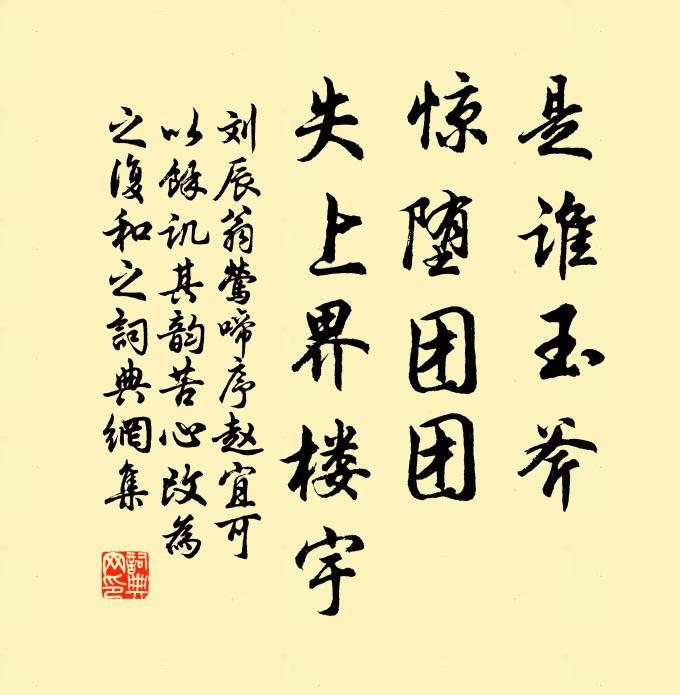 是谁玉斧
惊堕团团
失上界楼宇
刘辰翁莺啼序赵宜可
以餘讥其韵苦心改為
之復和之詞典網集
詞典
网印